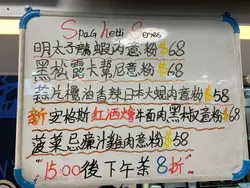 Spaghetti Series
明太子鴉蝦肉意粉$68
黑松露卡邦尼意粉$68
蒜片欖油香辣日本大蝦肉意粉$58
新 安格斯紅酒燴牛面肉黑椒意粉$68
菠菜忌廉汁雞肉意粉$68
"15:00後下午茶8折"